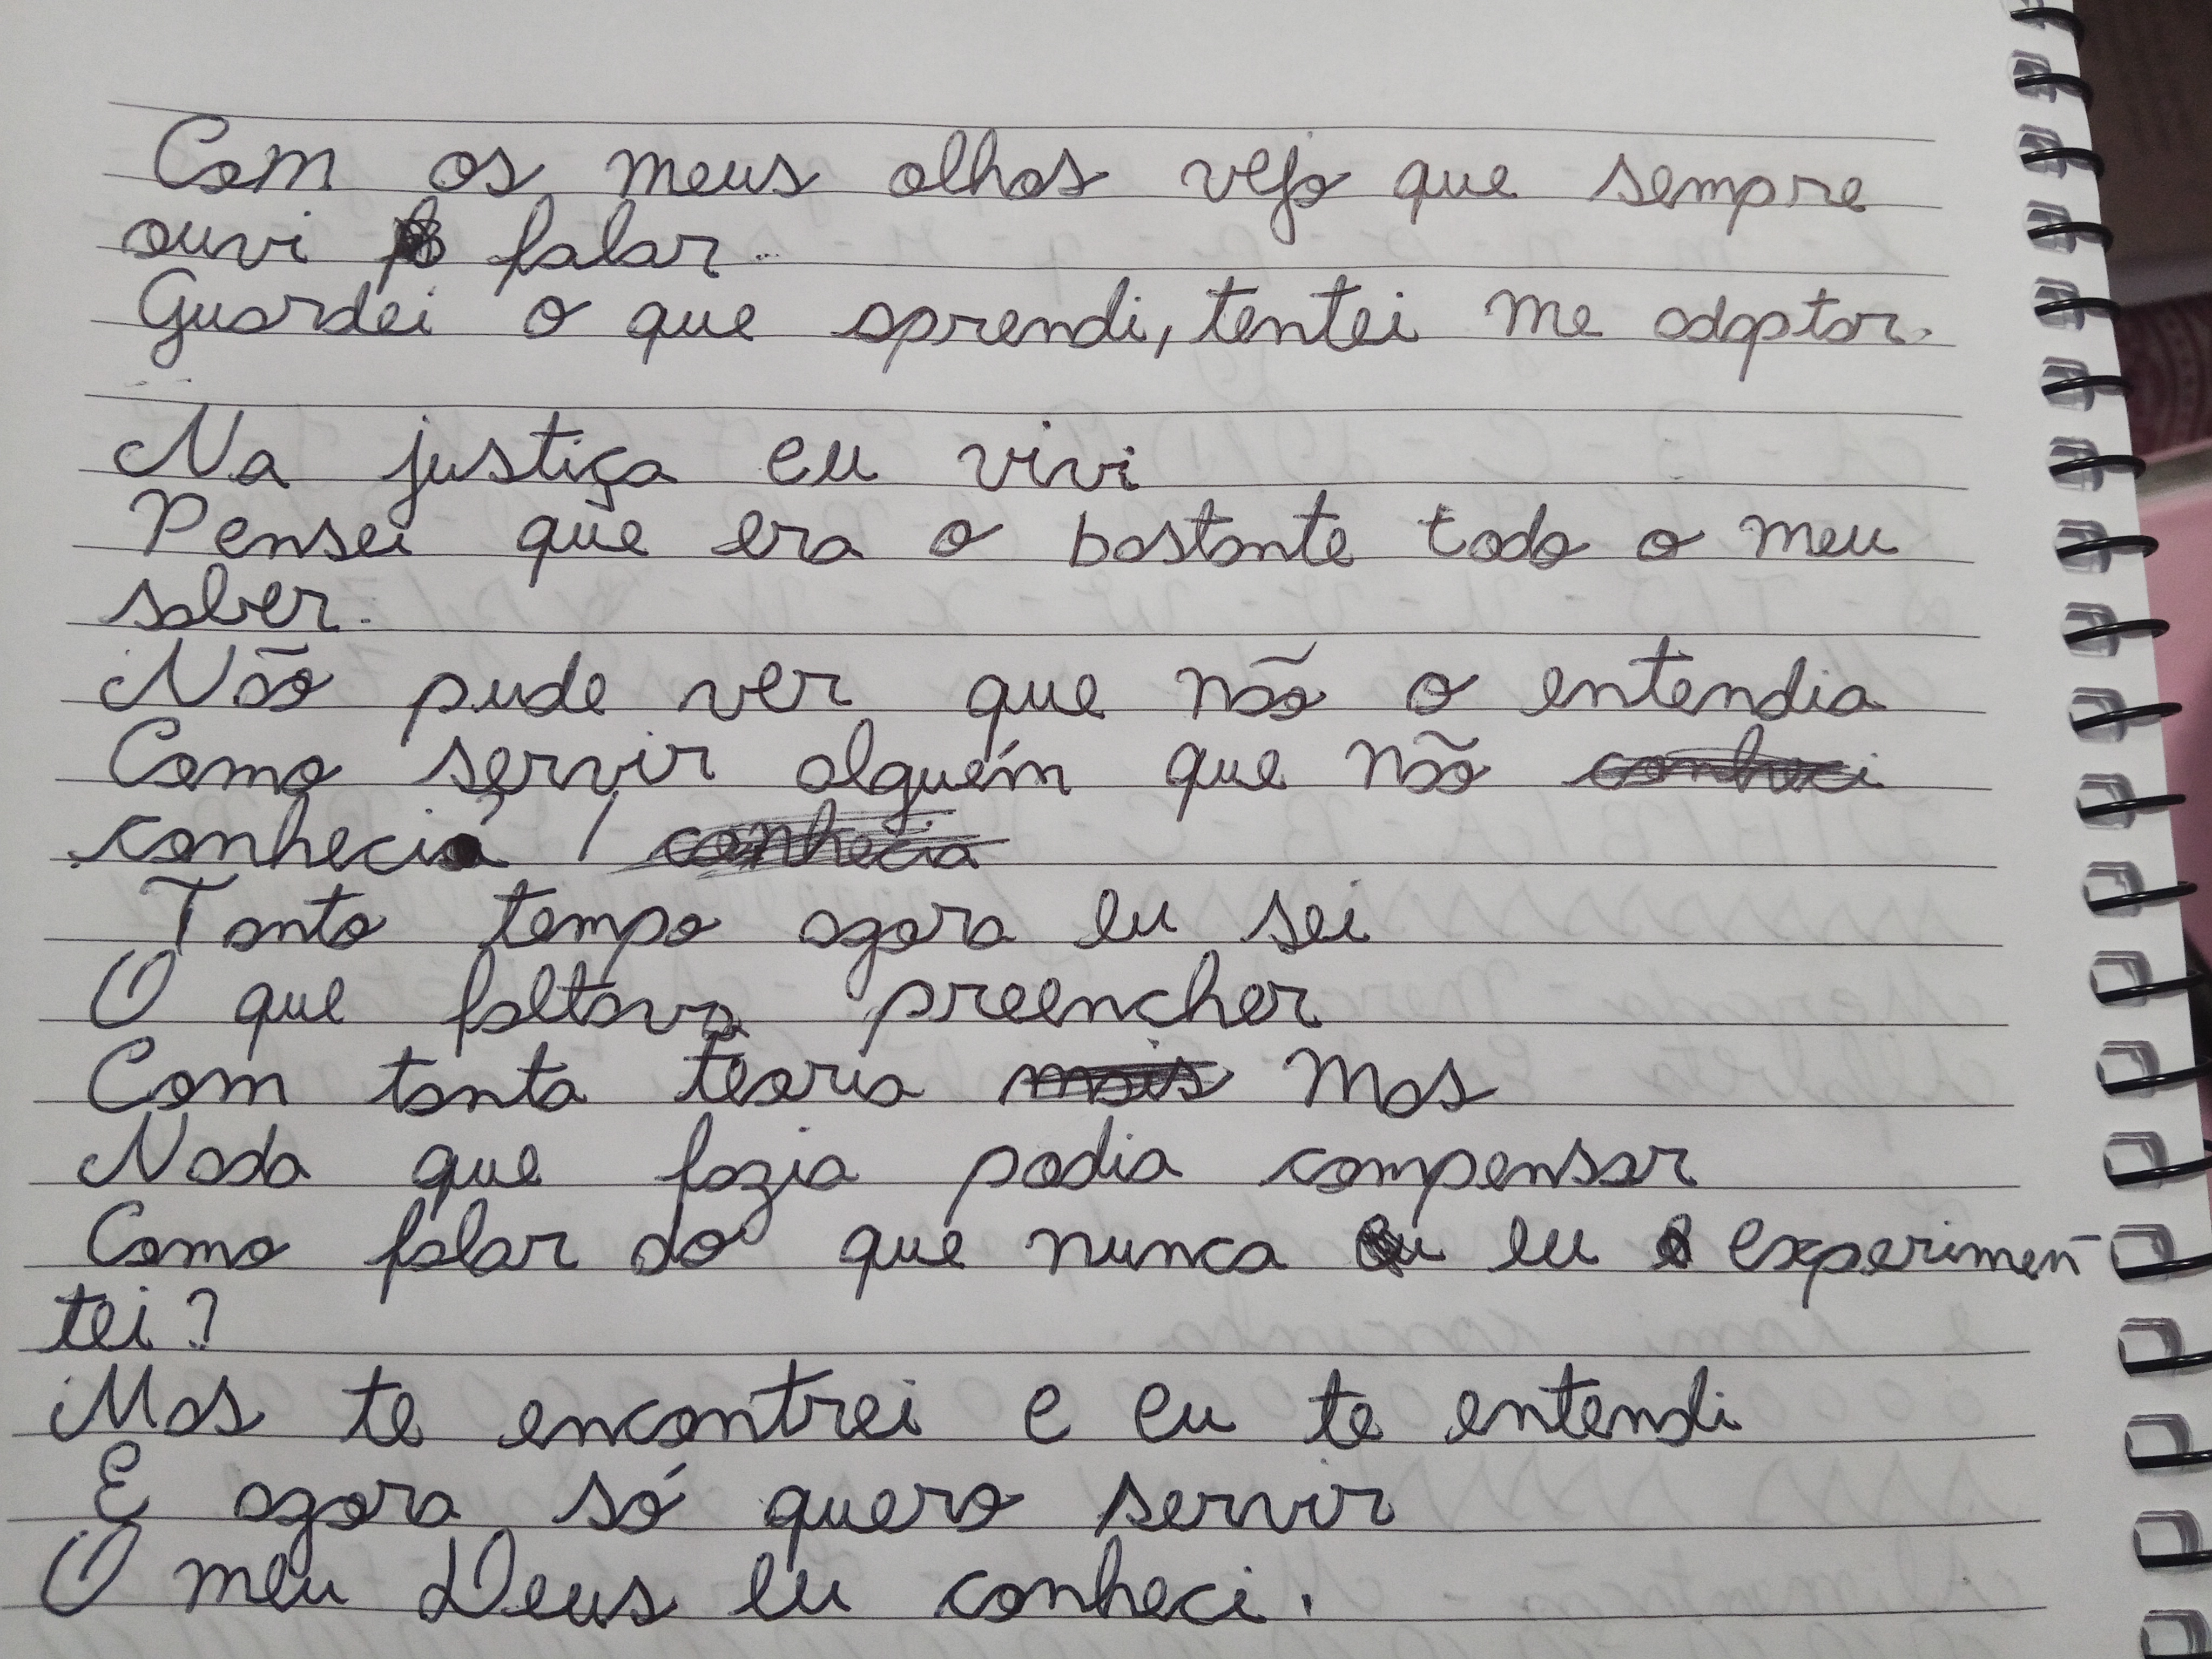 Com os meus olhos vejo que sempre
ouvi falar...
Guardei o que aprendi, tentei me adaptar.
Na justiça eu vivi
Pensei que era o bastante todo o meu
saber.
Não pude ver que não o entendia
Como servir alguém que não conheci
conhecia / conhecia
Tanto tempo agora eu sei
O que faltava preencher
Com tanta teoria mais Mas
Nada que fazia podia compensar
Como falar do que nunca eu eu experimen-
tei?
Mas te encontrei e eu te entendi
E agora só quero servir
O meu Deus eu conheci.